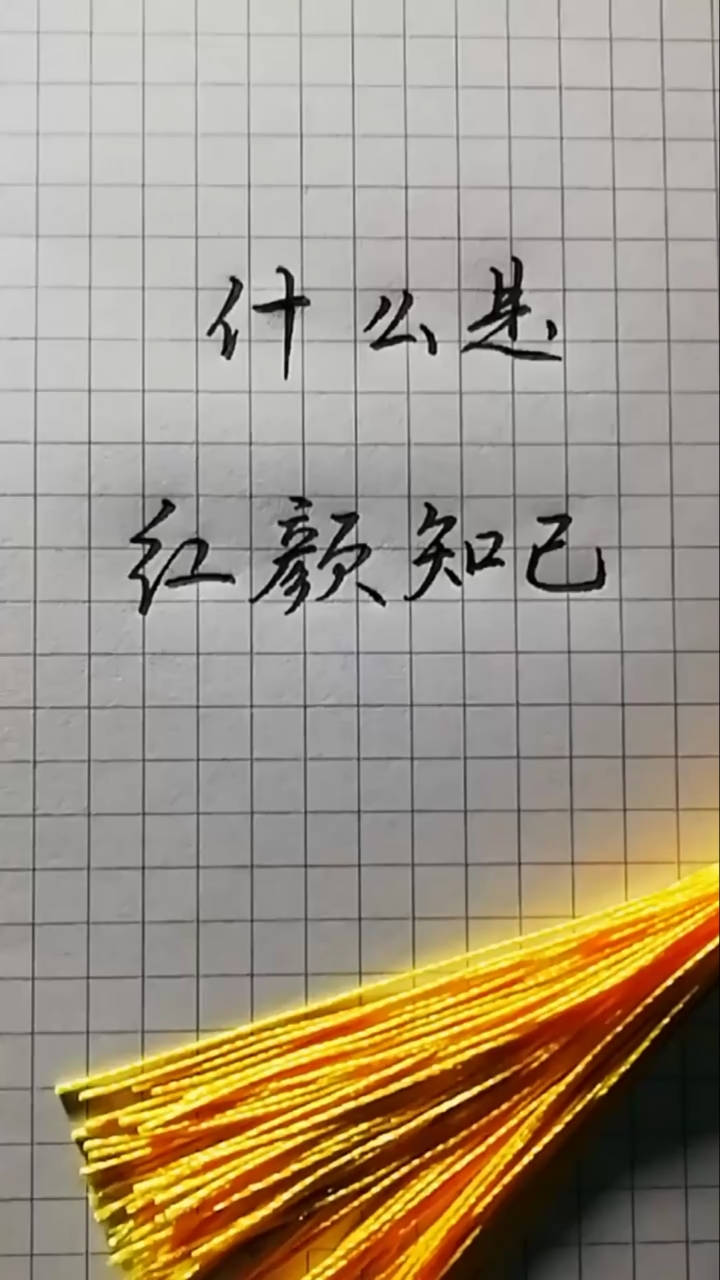 什么是
红颜知己